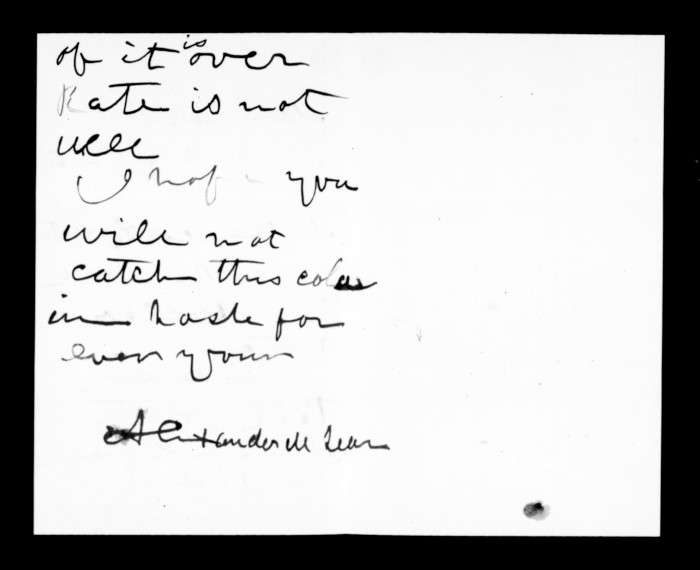 of it is over
Kate is not
well
I hope you
will not
catch this cold
in haste for
ever yours
Alexander McLean